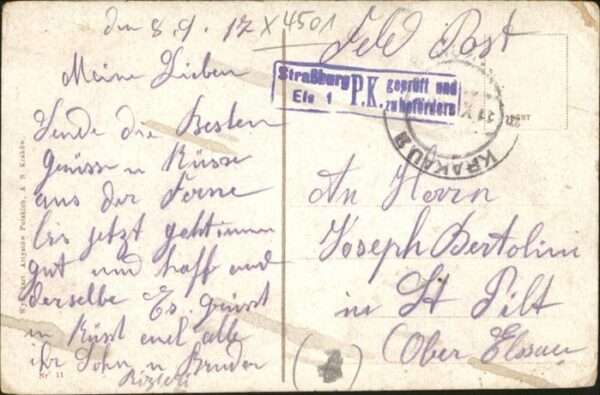 den 8.9.17 X 4501
Meine Lieben
Sende die Besten
Grüsse u Küsse
aus der Ferne
bis jetzt geht immer
gut und hoff auch
derselbe Es grüsst
u Küsst euch alle
ihr Sohn u Bruder
Nr 11
Feld Post
Straßburg P.K. geprüft und
Els 1 zu befördern
KRAKAU 2
An Herrn
Joseph Bertolini
in St Pilt
(Ober Elsass)